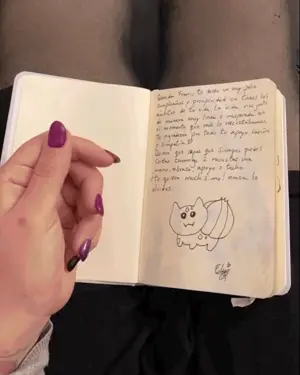 Querido Fran: te deseo un muy feliz
cumpleaños y prosperidad en todos los
ámbitos de tu vida. La vida nos juntó
de manera muy linda e inesperada en
el momento que más lo necesitábamos
Te agradezco por todo tu apoyo, cariño
y simpatía
que sepas que siempre podés
contar conmigo
mano, abrazo, apoyo o techo
Te quiero mucho
olvides